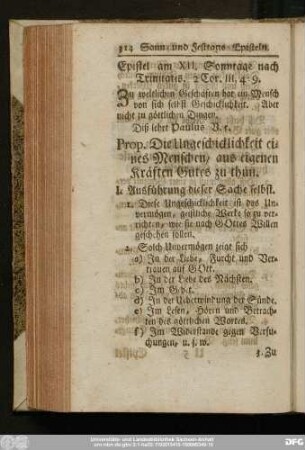 314 Sonn- und Festtags-Episteln.
Epistel am XII. Sonntage nach
Trinitatis, 2 Cor. III. 4-9.
Zu weltlichen Geschäften hat ein Mensch
von sich selbst Geschicklichkeit. Aber
nicht zu göttlichen Dingen.
Diß lehrt Paulus V. 5.
Prop. Die Ungeschicklichkeit ei-
nes Menschen, aus eigenen
Kräften Gutes zu thun.
I. Ausführung dieser Sache selbst.
1. Diese Ungeschicklichkeit ist das Un-
vermögen, geistliche Werke so zu ver-
richten, wie sie nach GOttes Willen
geschehen sollen.
2. Solch Unvermögen zeigt sich
a) In der Liebe, Furcht und Ver-
trauen auf GOtt.
b) In der Liebe des Nächsten.
c) Im Gebet.
d) In der Ueberwindung der Sünde.
e) Im Lesen, Hören und Betrach-
ten des göttlichen Wortes.
f) Im Widerstande gegen Versu-
chungen, u. s. w.
3. Zu
Universitäts- und Landesbibliothek Sachsen-Anhalt
DFG